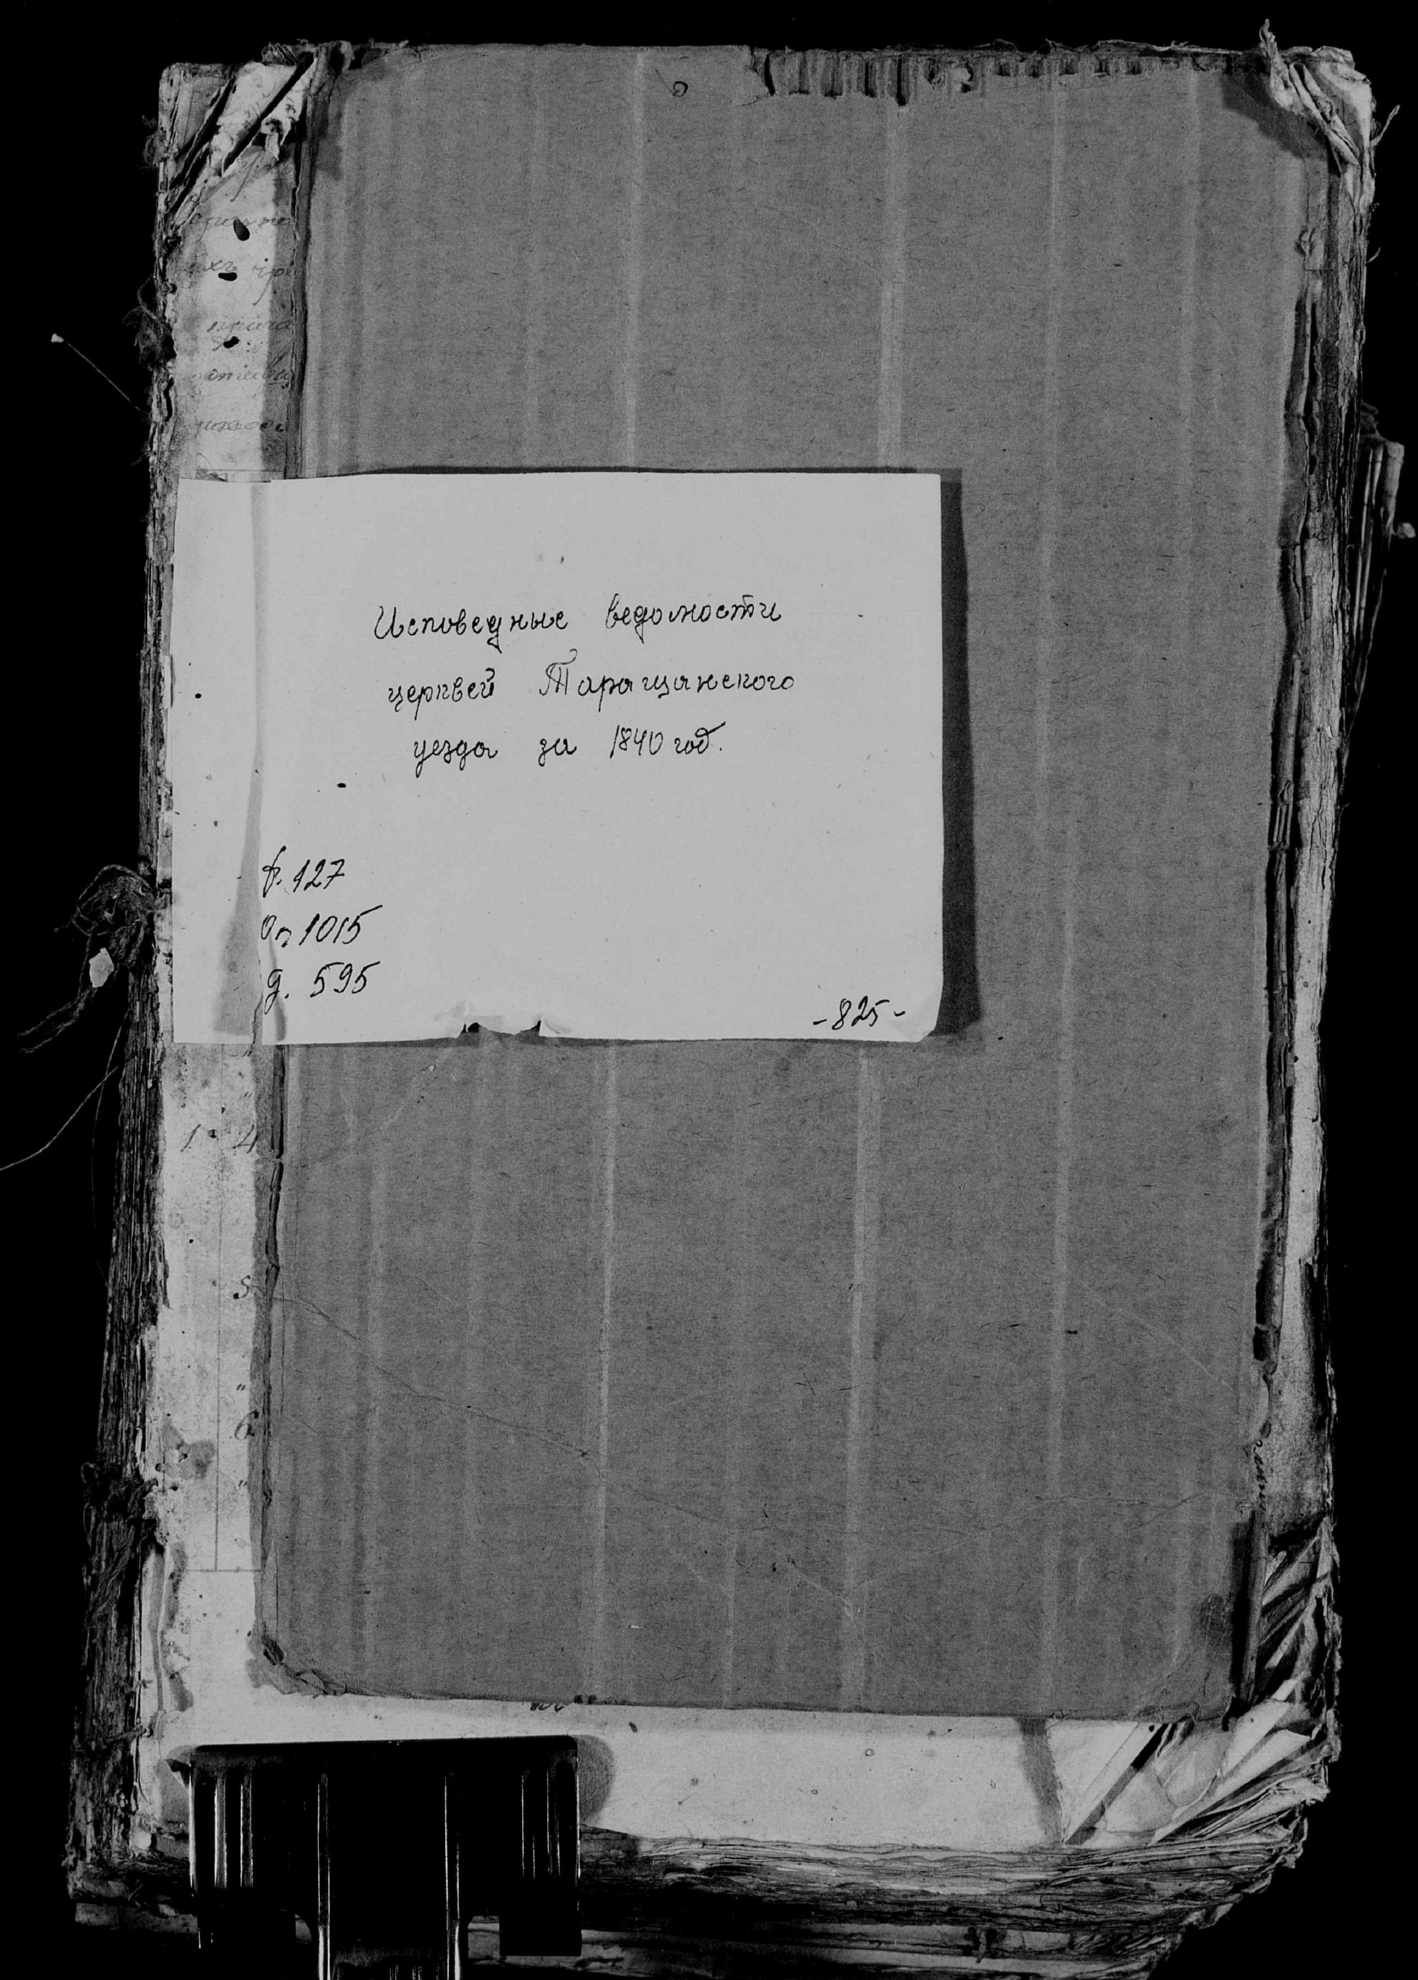 Исповедные ведомости
церквей Таращанского
уезда за 1840 год.
ф. 127
Оп 1015
д. 595
-825-
1 4
5
6